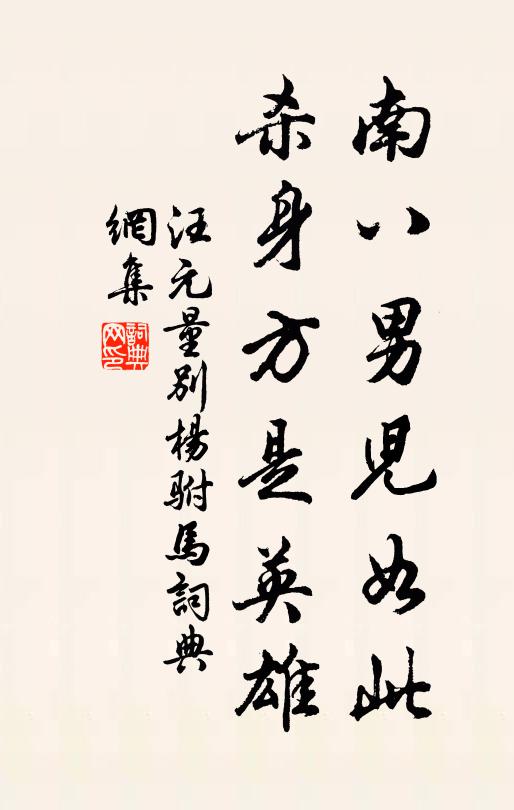 南八男児如此
杀身方是英雄
汪元量别楊駙馬詞典
網集
詞典
网印